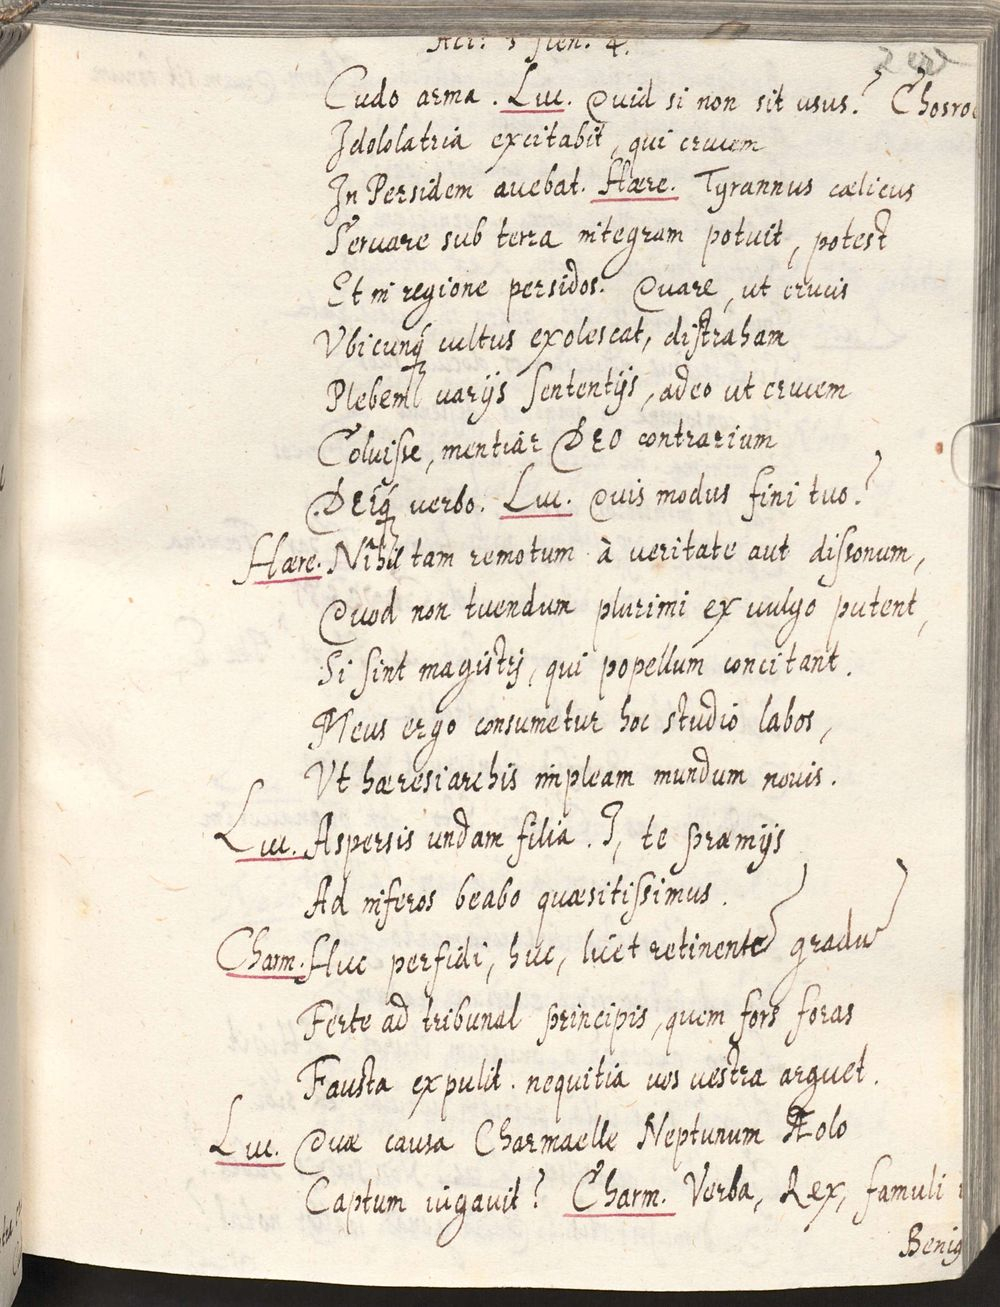 Act: 3 scen. 4.
Cudo arma. Luc. Quid si non sit usus? Chosroe
Idololatria excitabit, qui crucem
In Persidem auebat. Hære. Tyrannus cælicus
Seruare sub terra integram potuit, potest
Et in regione persidos. Quare, ut crucis
Vbicunq vultus exolescat, distraham
Plebem varijs sententijs, adeo ut crucem
Coluisse, mentiar DEO contrarium
DEIq verbo. Luc. Quis modus fini tuo?
Hære. Nihil tam remotum à veritate aut dissonum,
Quod non tuendum plurimi ex vulgo putent,
Si sint magistri, qui popellum concitant.
Meus ergo consumetur hoc studio labos,
Vt hæresiarchis impleam mundum nouis.
Luc. Aspersis undam filia. I, te præmijs
Ad inferos beabo quæsitissimus.
Charm. Huc perfidi, huc, licet retinente gradu
Ferte ad tribunal principis, quem fors foras
Fausta expulit. nequitia uos uestra arguet.
Luc. Quæ causa Charmaelle Neptunum Æolo
Captum iugauit? Charm. Verba, Rex, famuli
Benig